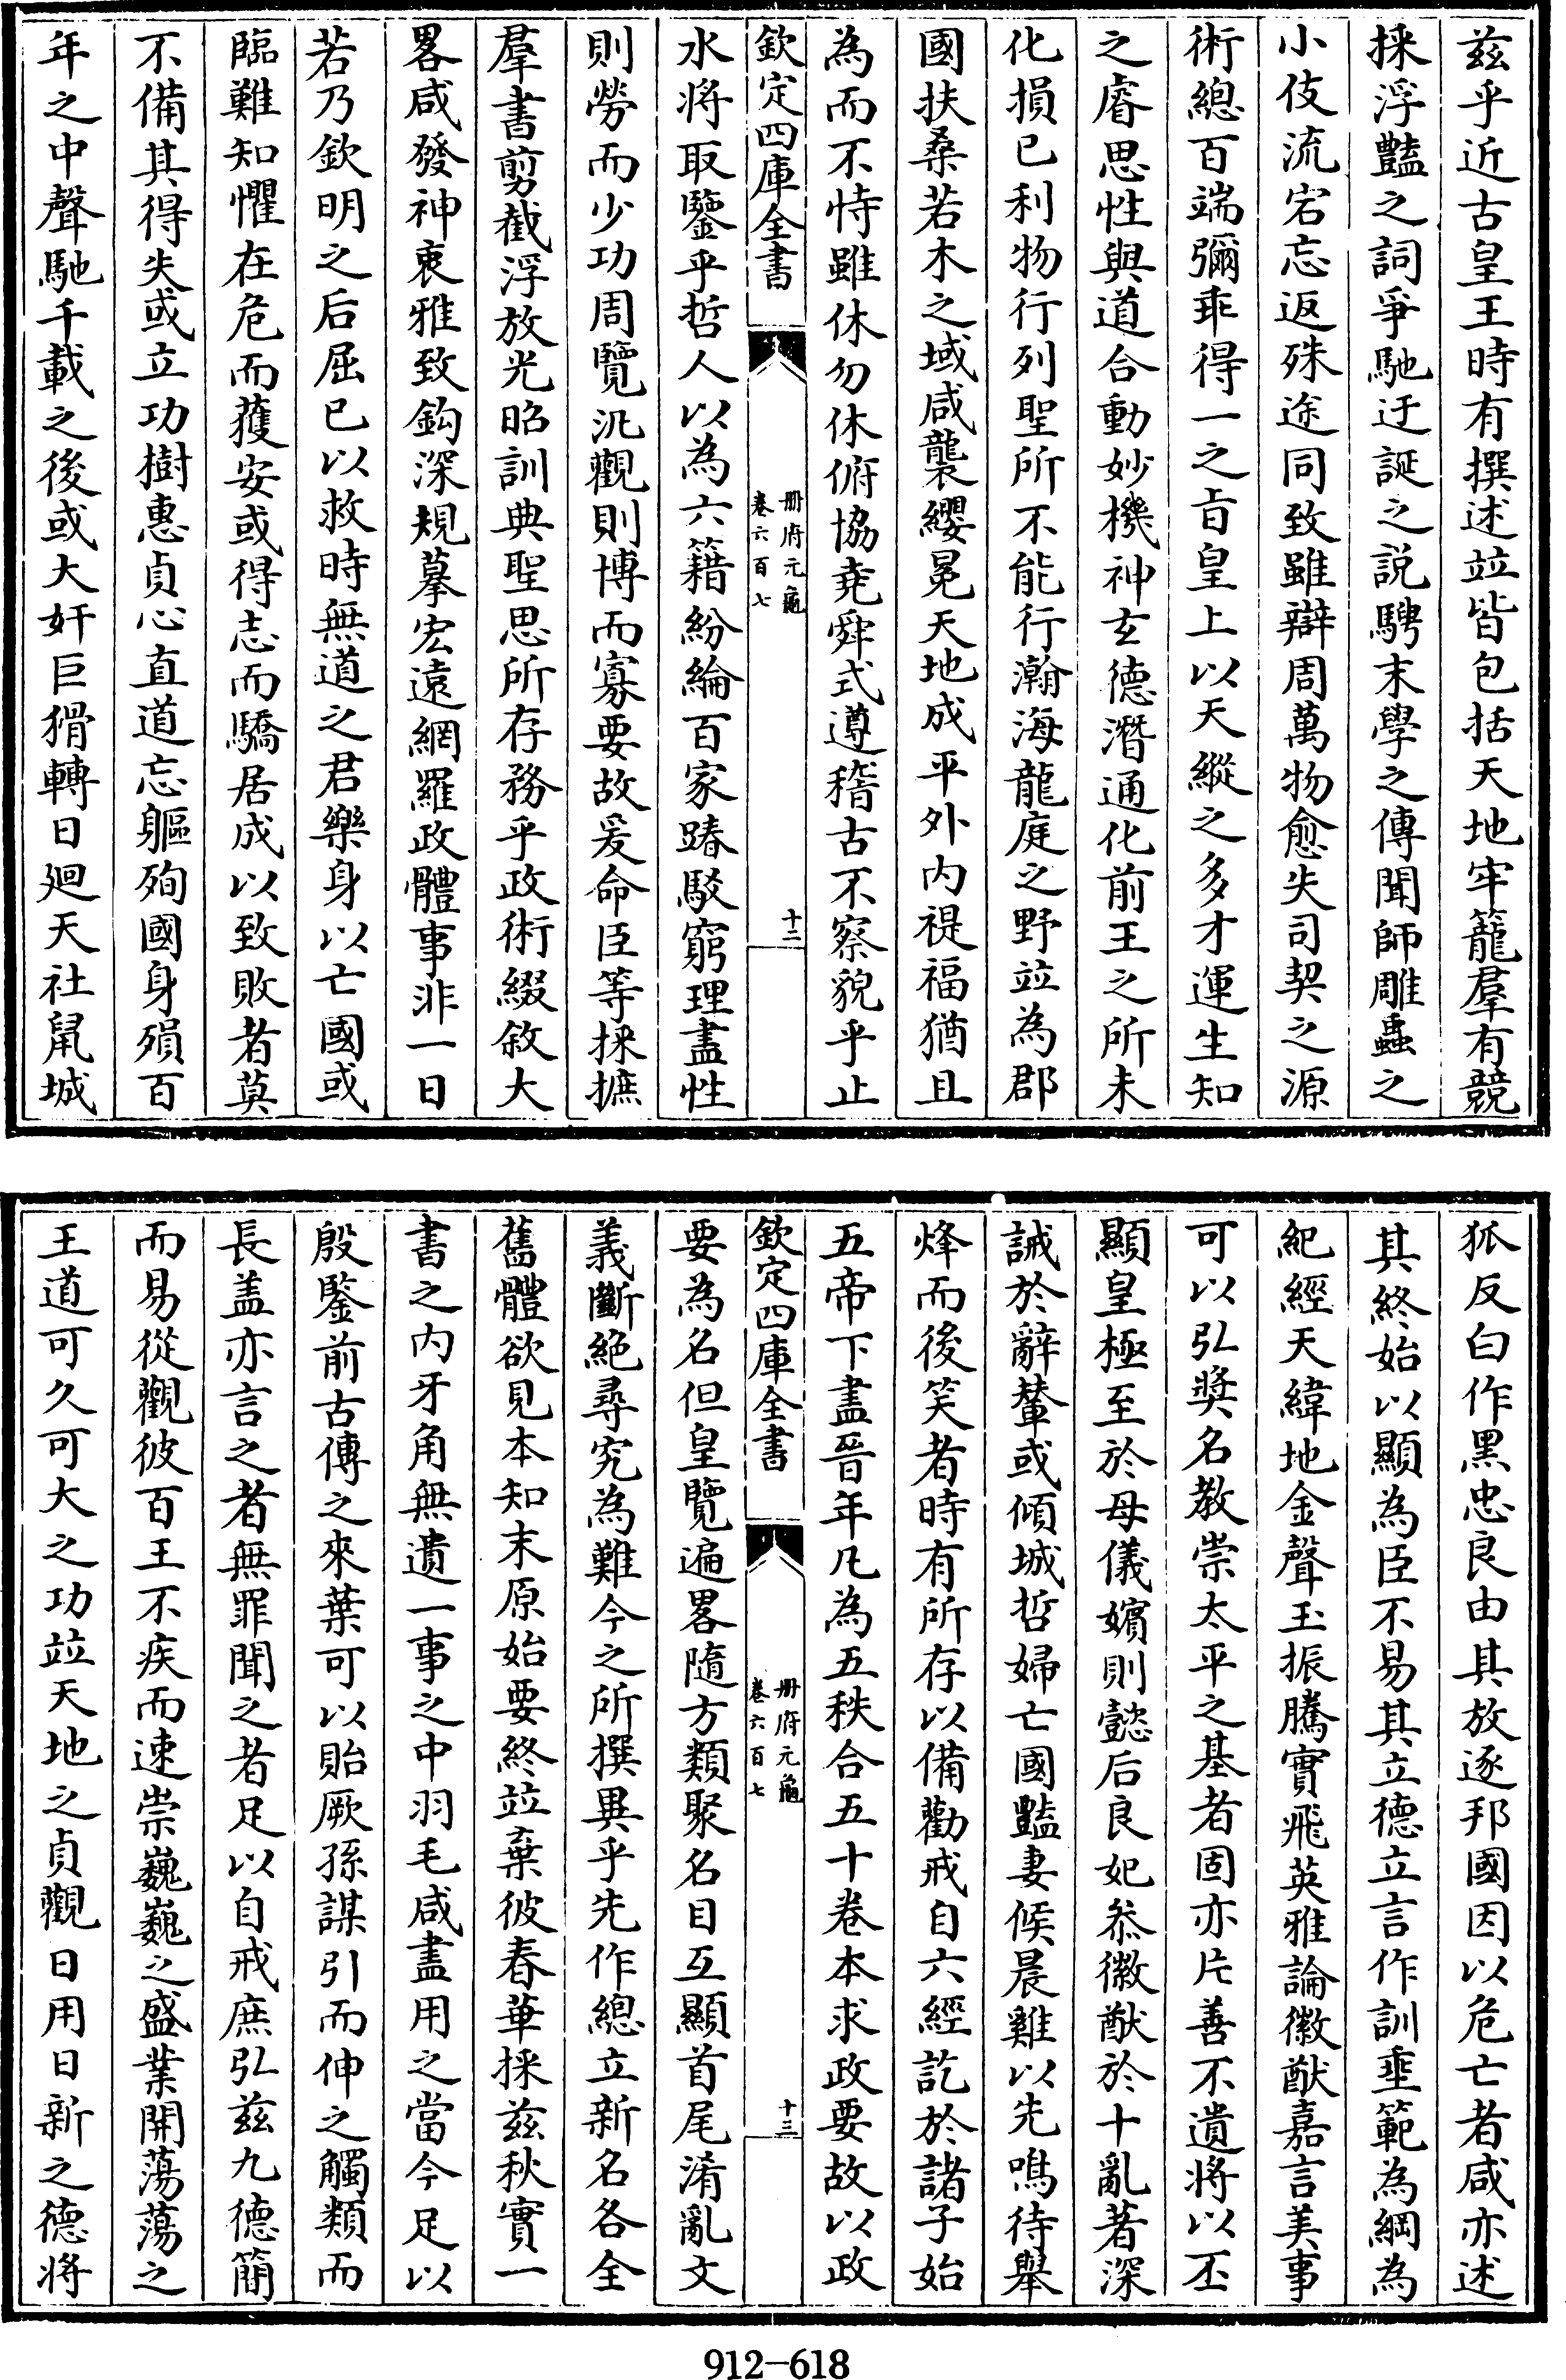 茲乎近古皇王時有撰述竝皆包括天地牢籠羣有競
採浮豔之詞爭馳迂誕之説騁末學之傳聞師雕蟲之
小伎流宕忘返殊途同致雖辯周萬物愈失司契之源
術總百端彌乖得一之旨皇上以天縱之多才運生知
之睿思性與道合動妙機神玄德潛通化前王之所未
化損已利物行列聖所不能行瀚海龍庭之野竝為郡
國扶桑若木之域咸襲纓冕天地成平外内禔福猶且
為而不恃雖休勿休俯協堯舜式遵稽古不察貌乎止
欽定四庫全書
册府元龜
卷六百七
十二
水將取鑒乎哲人以為六籍紛綸百家踳駁窮理盡性
則勞而少功周覽汎觀則博而寡要故爰命臣等採摭
羣書剪截浮放光昭訓典聖思所存務乎政術綴敘大
畧咸發神衷雅致鈎深規摹宏遠網羅政體事非一日
若乃欽明之后屈已以救時無道之君樂身以亡國或
臨難知懼在危而獲安或得志而驕居成以致敗者莫
不備其得失或立功樹惠貞心直道忘軀殉國身殞百
年之中聲馳千載之後或大奸巨猾轉日廻天社鼠城
狐反白作黑忠良由其放逐邦國因以危亡者咸亦述
其終始以顯為臣不易其立德立言作訓垂範為綱為
紀經天緯地金聲玉振騰實飛英雅論徽猷嘉言美事
可以弘奬名教崇太平之基者固亦片善不遺將以丕
顯皇極至於母儀嬪則懿后良妃叅徽猷於十亂著深
誡於辭輦或傾城哲婦亡國豔妻候晨雞以先鳴待舉
烽而後笑者時有所存以備勸戒自六經訖於諸子始
五帝下盡晉年凡為五秩合五十卷本求政要故以政
欽定四庫全書
册府元龜
卷六百七
十三
要為名但皇覽遍畧隨方類聚名目互顯首尾淆亂文
義斷絶尋究為難今之所撰異乎先作總立新名各全
舊體欲見本知末原始要終竝棄彼春華採茲秋實一
書之内牙角無遺一事之中羽毛咸盡用之當今足以
殷鑒前古傳之來葉可以貽厥孫謀引而伸之觸類而
長盖亦言之者無罪聞之者足以自戒庶弘茲九德簡
而易從觀彼百王不疾而速崇巍巍之盛業開蕩蕩之
王道可久可大之功竝天地之貞觀日用日新之德將
912-618